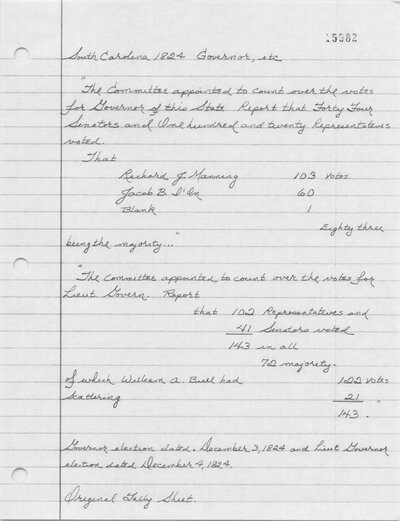 15382
South Carolina 1824 Governor, etc
"The Committee appointed to count over the votes
for Governor of this State Report that Forty Four
Senators and One hundred and twenty Representatives
voted.
That
Richard J. Manning 103 votes
Jacob B. I'On 60
Blank 1
Eighty three
being the majority..."
"The Committee appointed to count over the votes for
Lieut. Govern. Report
that 102 Representatives and
41 Senators voted
143 in all
72 majority.
of which William A. Bull had 122 votes
Scattering 21 "
143 .
Governor election dated. December 3, 1824 and Lieut Governor
election dated December 4, 1824.
Original Tally Sheet.